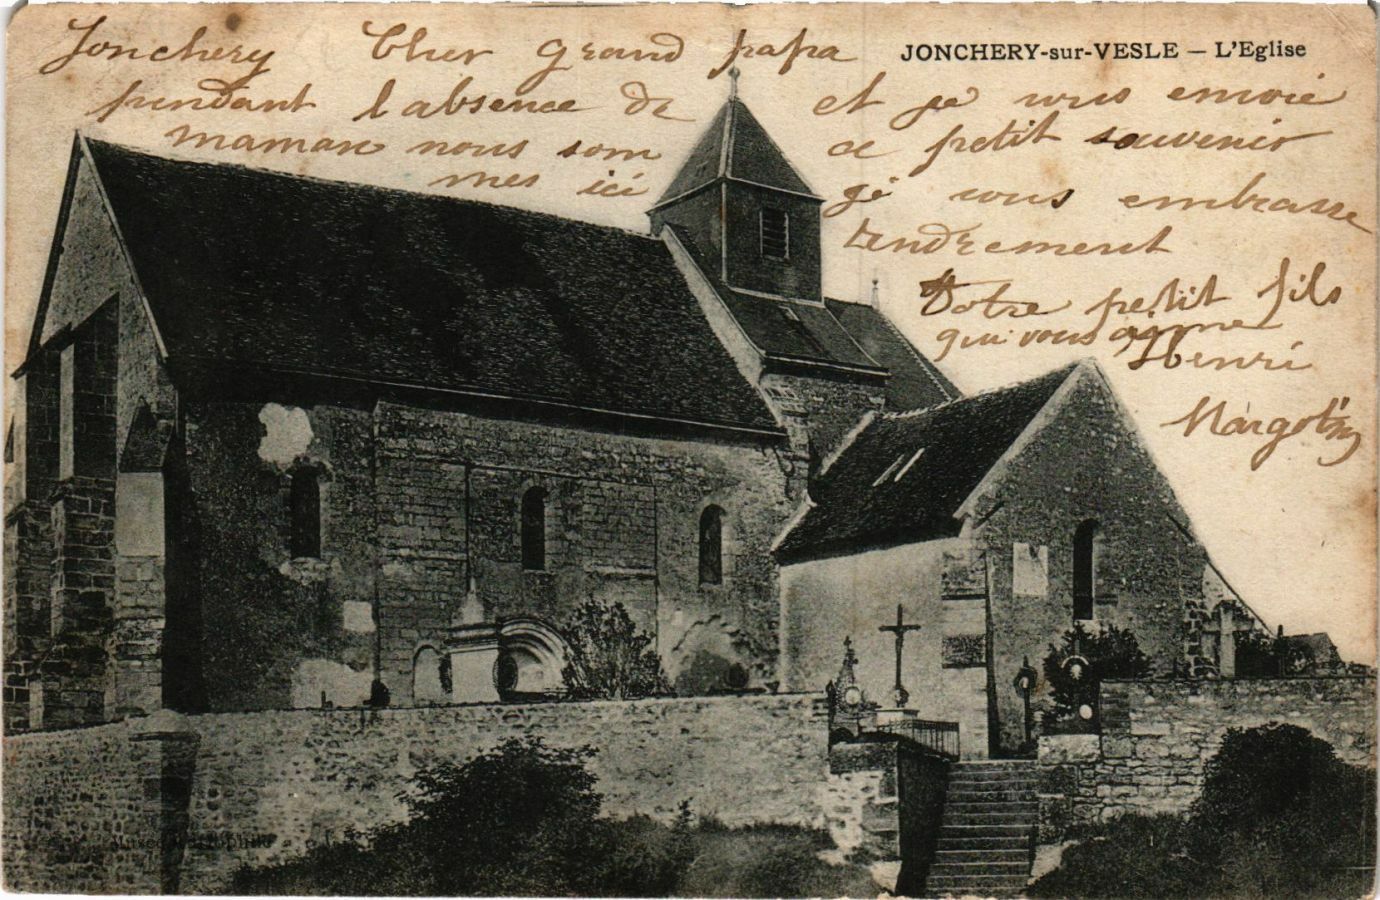 JONCHERY-sur-VESLE — L'Eglise
Jonchery Cher grand papa
pendant l'absence de
maman nous som
mes ici
et je vous envoie
ce petit souvenir
Je vous embrasse
tendrement
Votre petit fils
qui vous aime
Henri